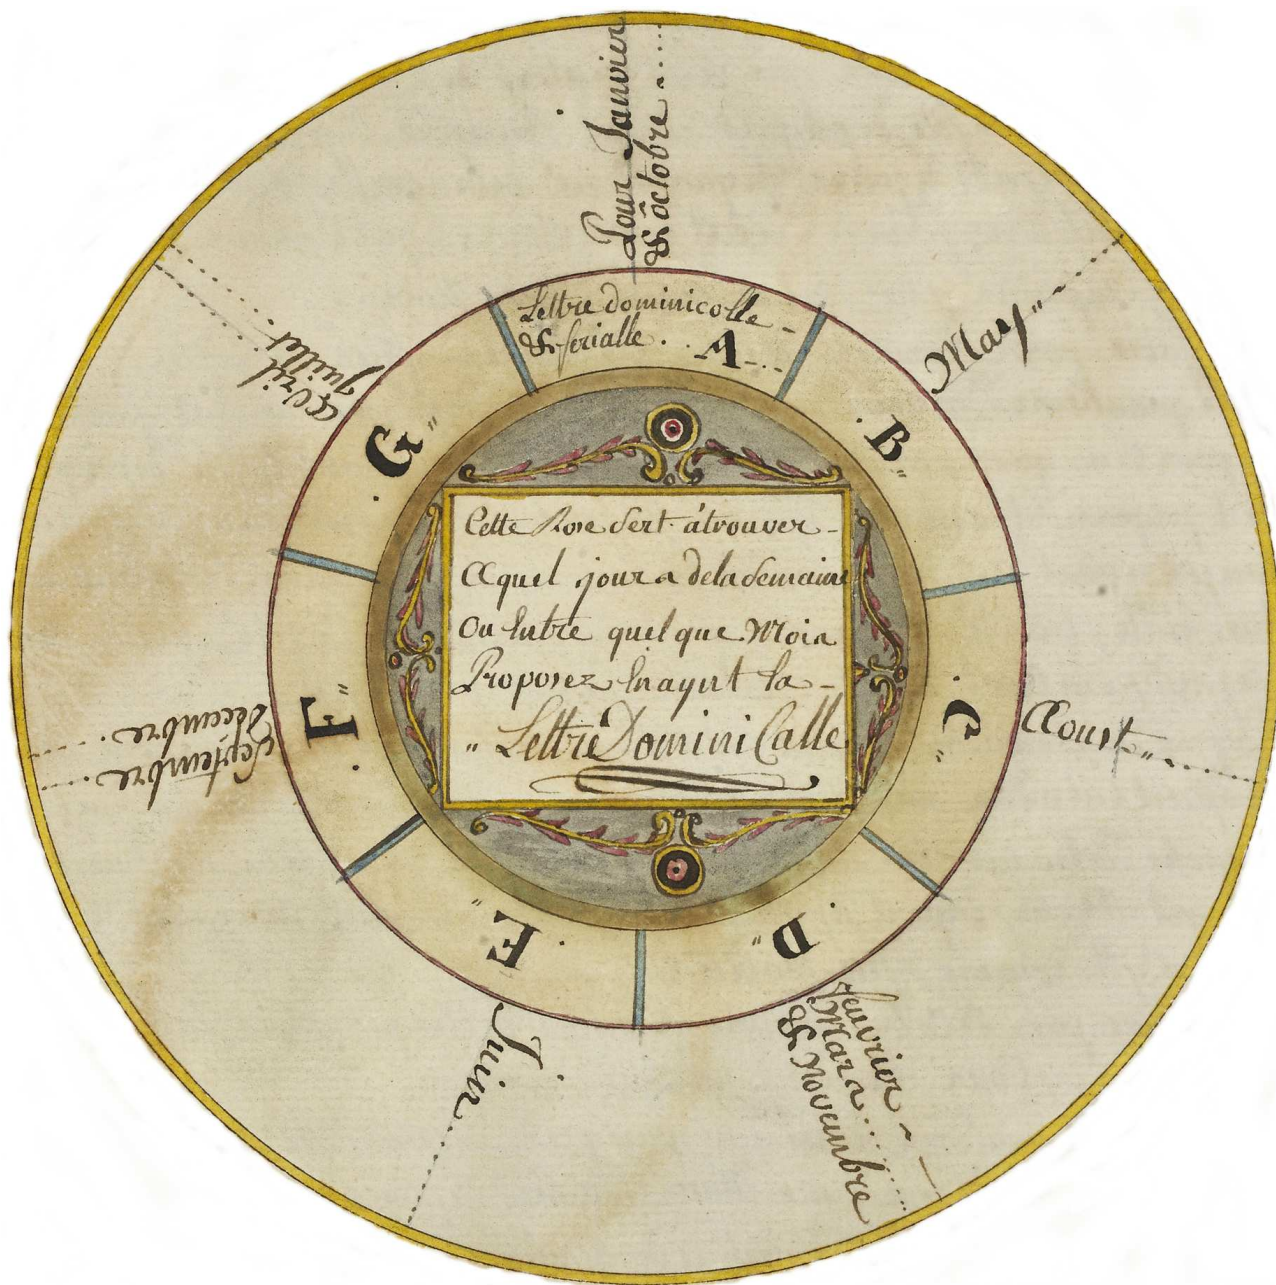 Pour Janvier
& octobre
Lettre dominicolle
& ferialle
A
B
May
C
Aoust
D
feuvrier
Mars
& Novembre
E
Juin
F
Septembre
Décembre
G
Avril
Juillet
Cette Rose Sert a trouver
A quel jour a de la Semaine
ou Entre quelque Mois
Proposez En ayent la
Lettre Domini Calle